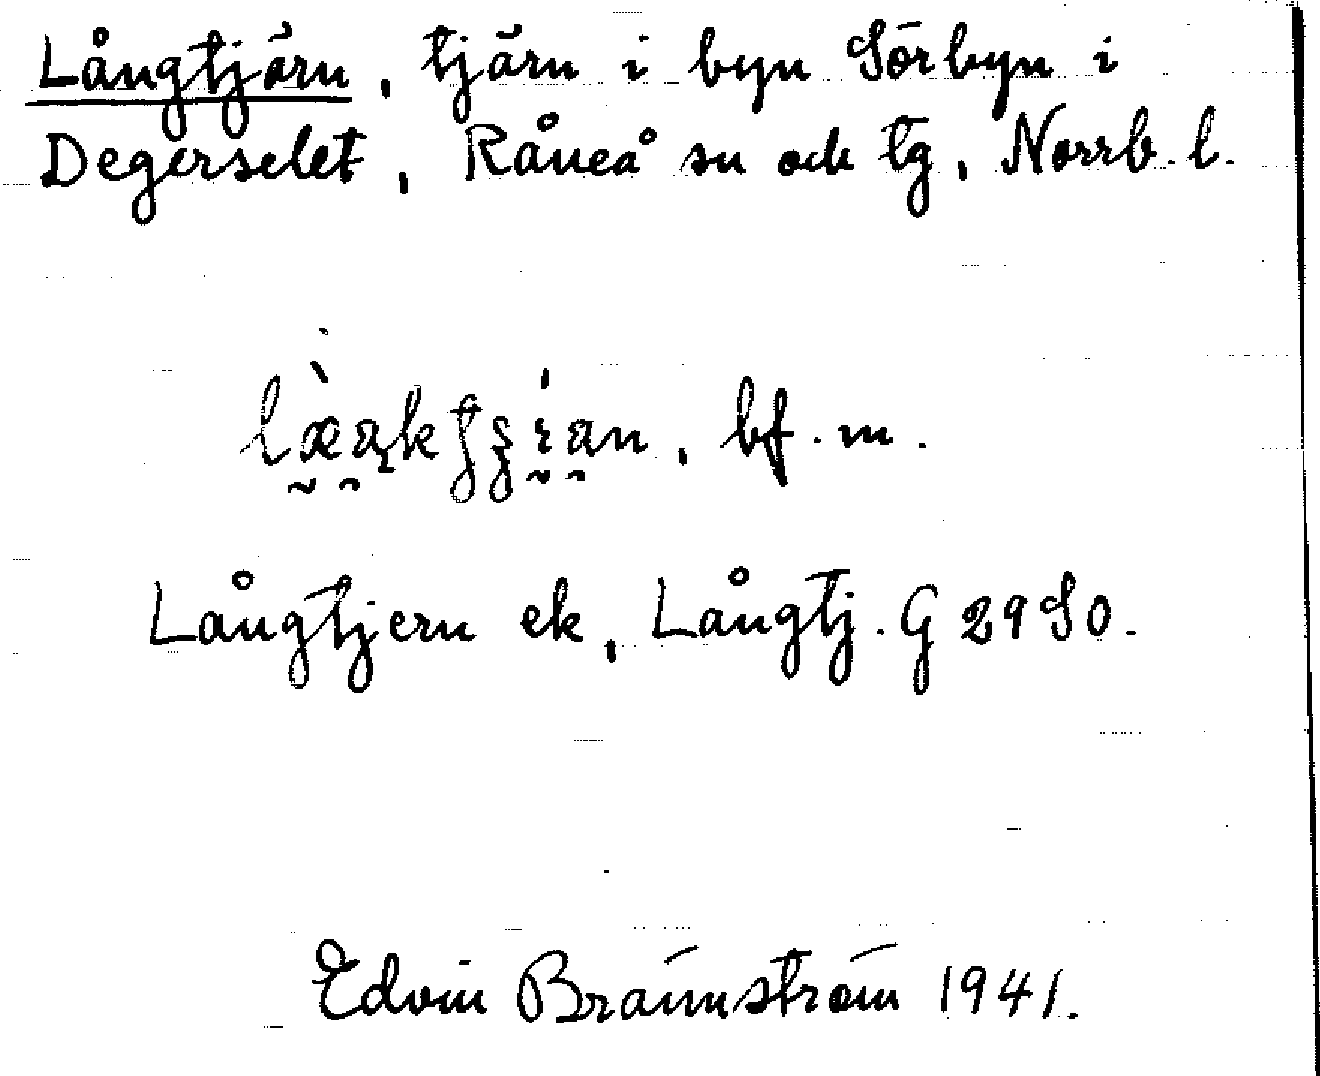 Långtjärn, tjärn i byn Sörbyn i
Degerselet, Råneå sn och tg, Norrb. l.
bf. m.
Långtjern ek, Långtj. G 29 SO.
Edvin Brännström 1941.